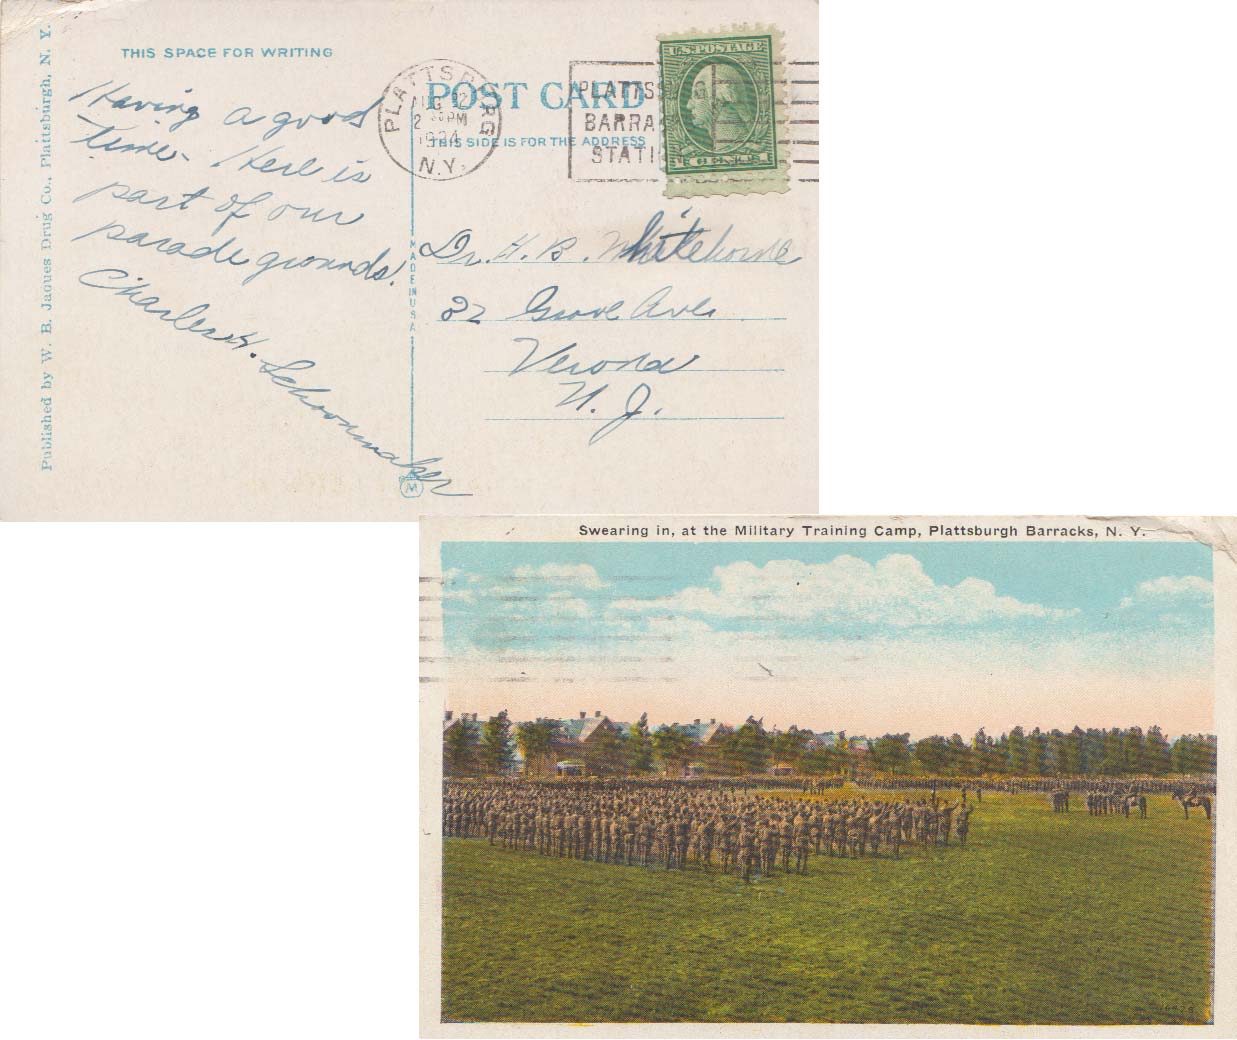 THIS SPACE FOR WRITING
Published by W. B. Jaques Drug Co., Plattsburgh, N. Y.
Having a good
time. Here is
part of our
parade grounds.
Charles H. Schoonmaker
POST CARD
THIS SIDE IS FOR THE ADDRESS
MADE IN USA
M
PLATTSBURG
AUG 12
2 PM
1924
N.Y.
PLATTSBURG
BARRA
STATI
U.S. POSTAGE
Dr. H. B. Whitehorne
22 Grove Ave
Verona
N. J.
Swearing in, at the Military Training Camp, Plattsburgh Barracks, N. Y.